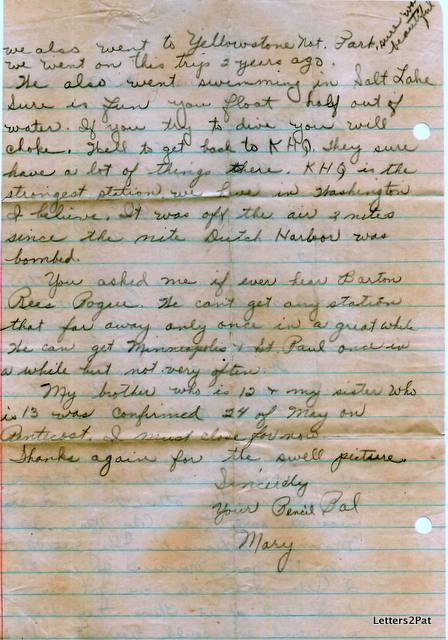 we also went to Yellowstone Nat. Park, sure was beautiful
we went on this trip 2 years ago.
We also went swimming in Salt Lake
Sure is fun you float half out of
water. If you try to dive you will
choke. Well to get back to KHQ. They sure
have a lot of things there. KHQ is the
strongest station we have in Washington
I believe. It was off the air 2 nites
since the nite Dutch Harbor was
bombed.
You asked me if ever hear Barton
Rees Pogue. We can't get any station
that far away only once in a great while
We can get Minneapolis & St. Paul once in
a while but not very often.
My brother who is 12 & my sister who
is 13 was confirmed 24 of May on
Pentecost. I must close for now
Thanks again for the swell picture.
Sincerely
Your Pencil Pal
Mary
Letters2Pat